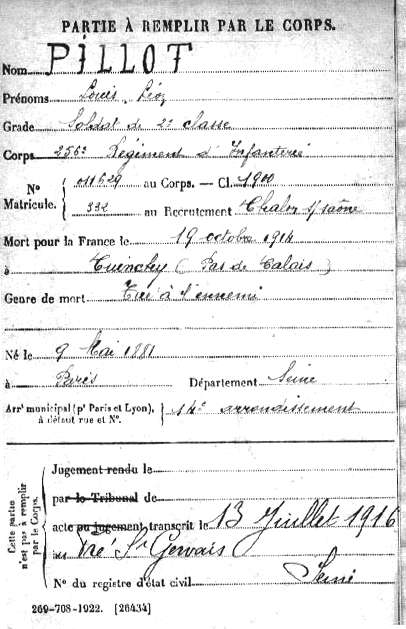 PARTIE À REMPLIR PAR LE CORPS.
Nom PILLOT
Prénoms Louis Léon
Grade Soldat de 2e classe
Corps 256e Régiment d'Infanterie
No Matricule. { 011629 au Corps. — Cl. 1900
332 au Recrutement Chalon s/saône
Mort pour la France le 19 octobre 1914
à Cuinchy (Pas de Calais)
Genre de mort Tué à l'ennemi
Né le 9 Mai 1881
à Paris Département Seine
Arrt municipal (pr Paris et Lyon), } 14e arrondissement
à défaut rue et No.
Cette partie n'est pas à remplir par le Corps.
Jugement rendu le
par le Tribunal de
acte ou jugement transcrit le 13 Juillet 1916
au Pré St Gervais
Seine
No du registre d'état civil
269-708-1922. [26434]